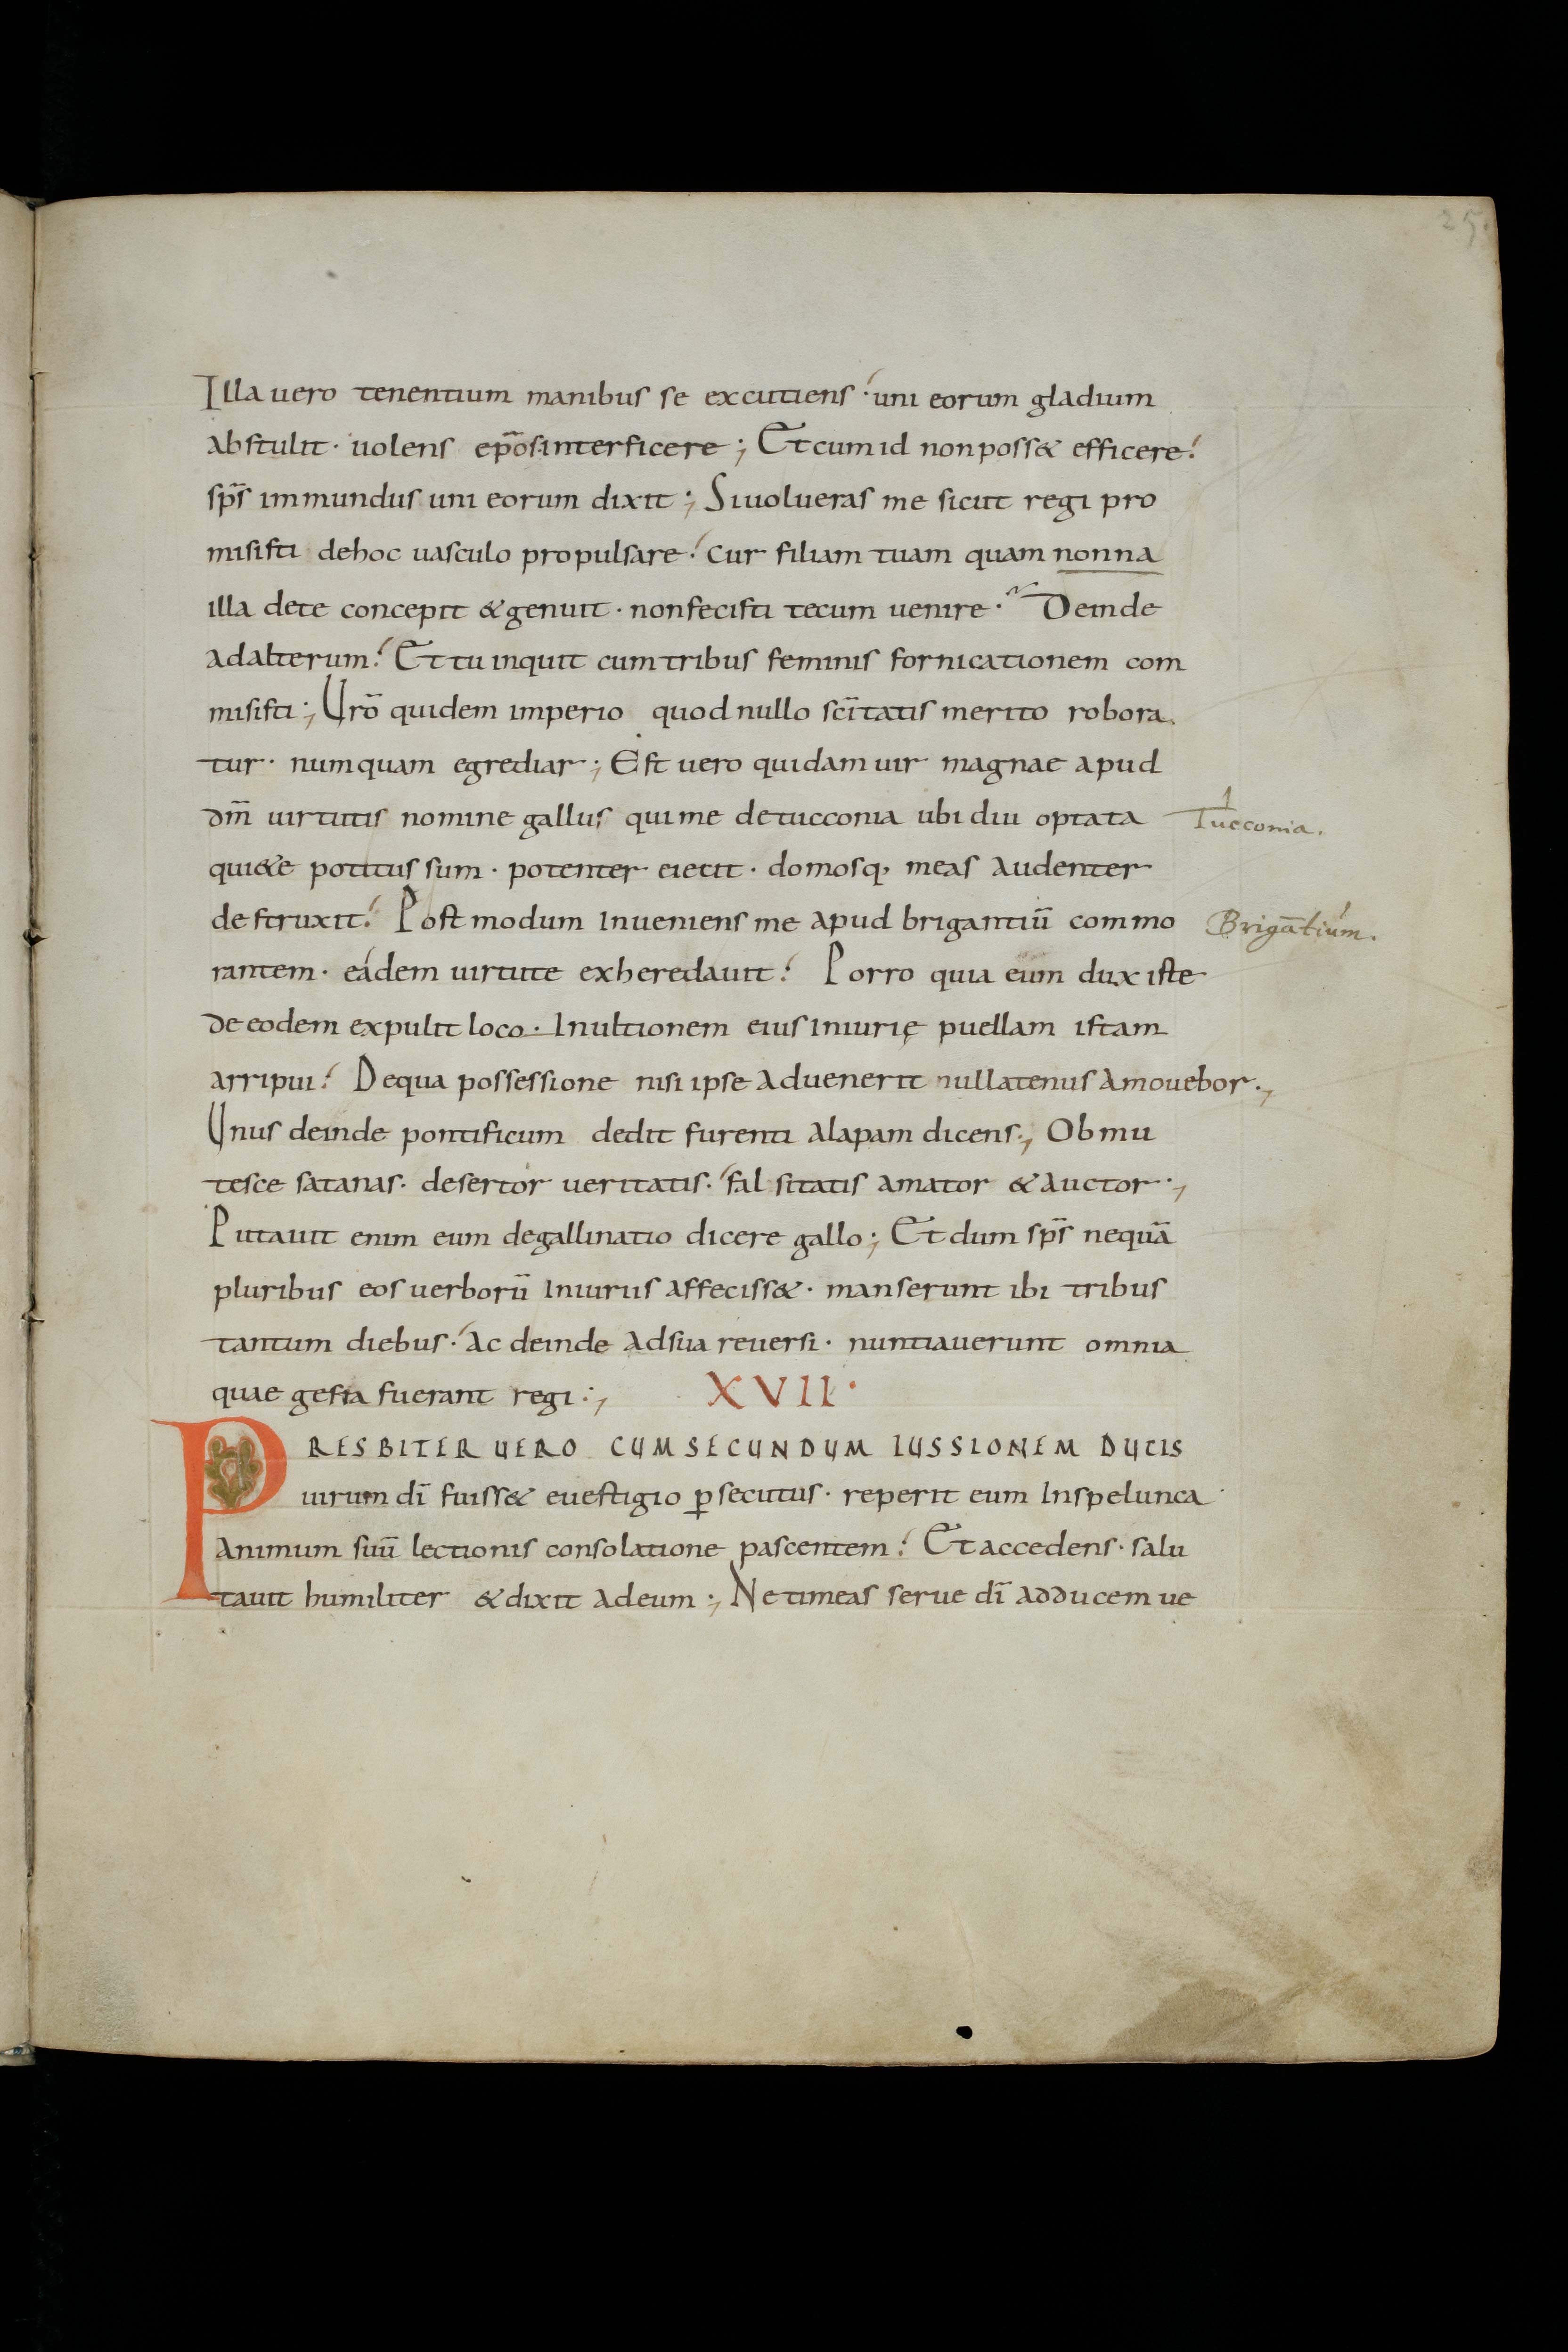 25.
Illa uero tenentium manibus se excutiens · uni eorum gladium
abstulit · uolens ep̄os interficere ; Et cum id non poss& efficere
sp̄s immundus uni eorum dixit ; Si uolueras me sicut regi pro
misisti de hoc uasculo propulsare · cur filiam tuam quam nonna
illa de te concepit & genuit · non fecisti tecum uenire · Deinde
ad alterum · Et tu inquit cum tribus feminis fornicationem com
misisti ; Ur̄o quidem imperio quod nullo sc̄itatis merito robora
tur · numquam egrediar ; Est uero quidam uir magnae apud
dm̄ uirtutis nomine gallus qui me de tucconia ubi diu optata
Tucconia.
qui&e potitus sum · potenter eiecit · domosq, meas audenter
destruxit · Postmodum inueniens me apud brigantiū commo
Brigātium.
rantem · eádem uirtute exheredauit · Porro quia eum dux iste
de eodem expulit loco · In ultionem eius iniurię puellam istam
arripui · De qua possessione nisi ipse aduenerit nullatenus amouebor ·,
Unus deinde pontificum dedit furenti alapam dicens ·, Obmu
tesce satanas · desertor ueritatis · falsitatis amator & auctor ·,
Putauit enim eum de gallinatio dicere gallo ; Et dum sp̄s nequā
pluribus eos uerborū iniuriis affeciss& · manserunt ibi tribus
tantum diebus · ac deinde ad sua reuersi · nuntiauerunt omnia
quae gesta fuerant regi :, XVII ·
PRESBITER UERO CUM SECUNDUM IUSSIONEM DUCIS
uirum dī fuiss& euestigio p̲secutus · reperit eum in spelunca
animum suū lectionis consolatione pascentem · Et accedens · salu
tauit humiliter & dixit ad eum ; Ne timeas serue dī ad ducem ue